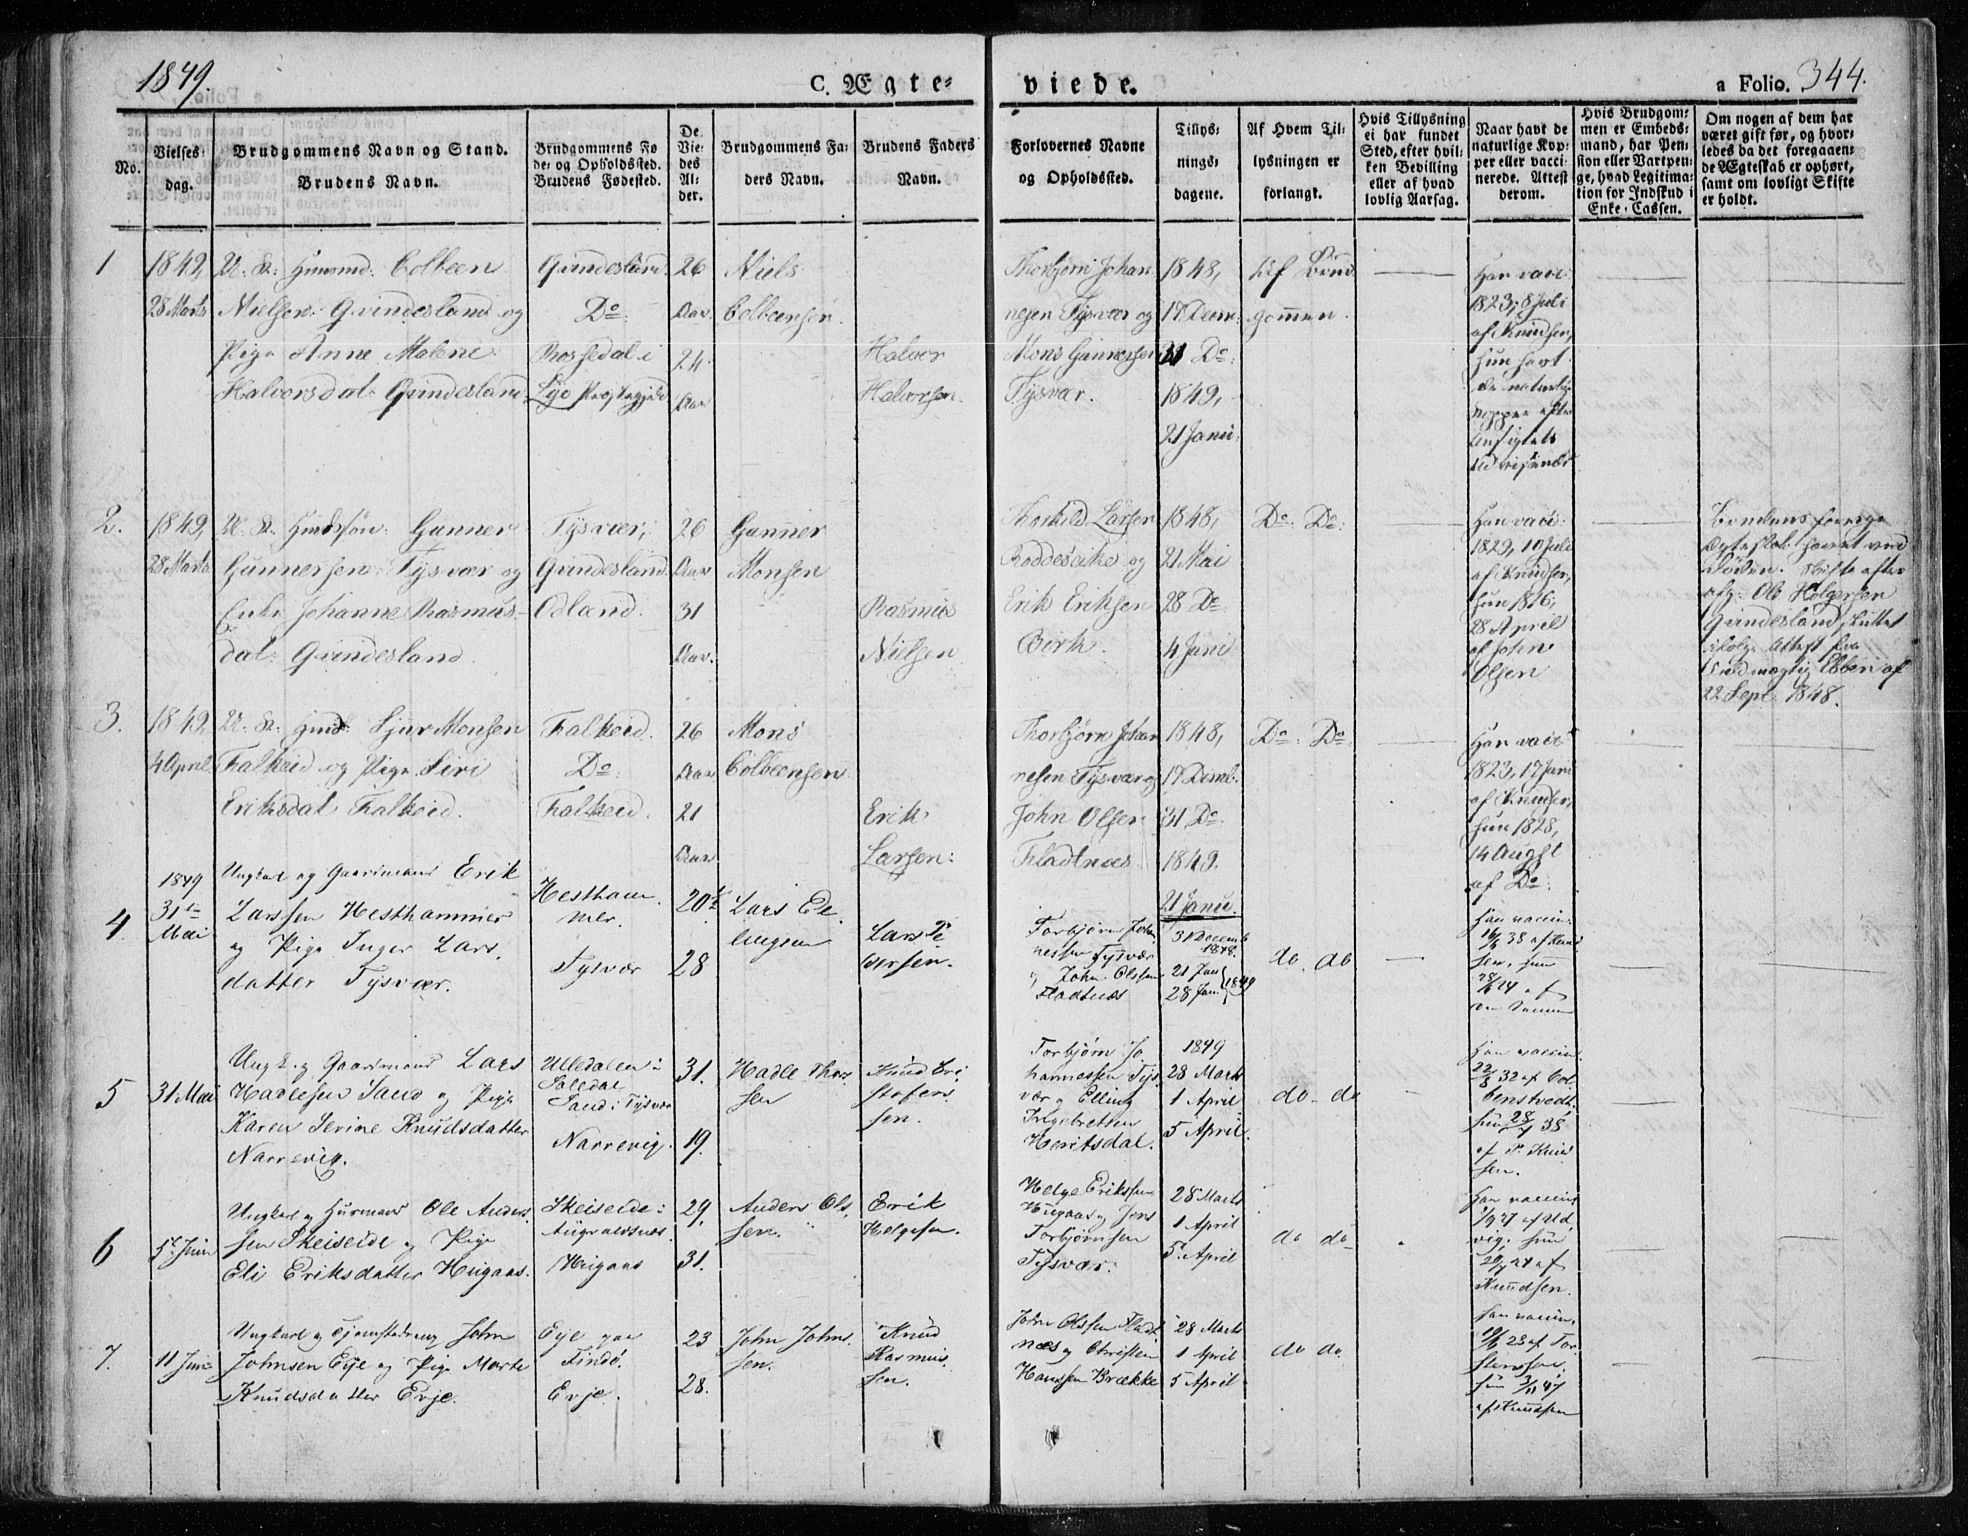 1849.
C. Ægte-
viede.
a Folio. 344.
No.
Vielses-
dag.
Brudgommens Navn og Stand.
Brudens Navn.
Brudgommens Fø
de- og Opholdssted.
Brudens Fødested.
De
Vie-
des
Al-
der.
Brudgommens Fa-
ders Navn.
Brudens Faders
Navn.
Forlovernes Navne
og Opholdssted.
Tillys-
nings-
dagene.
Af Hvem Til-
lysningen er
forlangt.
Hvis Tillysning
ei har fundet
Sted, efter hvil-
ken Bevilling
eller af hvad
lovlig Aarsag.
Naar havt de
naturlige Kop-
per eller vacci-
nerede. Attest
derom.
Hvis Brudgom-
men er Embeds-
mand, har Pen-
sion eller Vartpen-
ge, hvad Legitima-
tion for Indskud i
Enke-Cassen.
Om nogen af dem har
været gift før, og hvor-
ledes da det foregaaen-
de Ægteskab er ophørt,
samt om lovligt Skifte
er holdt.
1
1849,
28 Marts
Colbeen
Nielsen Grindesland og
Pige Anne Malene
Halvorsdat. Grindesland
Grindesland
Do
Rossedal i
26
Aar.
24.
Aar
Niels
Colbeensen.
Halvor
Halvorsen.
Thorbjørn Johan
nesen Tysvær og
Mons Gunnersen
Tysvær.
1848,
17 Decm.
31 Do.
1849,
21 Janu.
Af Brud
gommen.
Han vacc.
1823, 8 Juli
af Knudsen,
hun havt
de naturlige
Kopper efter
2.
1849,
28 Marts
Gunner
Gunnersen Tysvær og
Enke Johanne Rasmus-
dat. Grindesland.
Tysvær,
Grindesland
Odland.
26
Aar
31
Aar.
Gunner
Monsen
Rasmus
Nielsen
Thorkild Larsen
og
Erik Eriksen
Birk.
1848,
21 Mai
28 Do
4 Juni
Do. Do.
Han vacc.
1829, 10 Juli
af Knudsen,
hun 1816,
28 April
af John
Olsen
afg. Ole Holgersen
Grindesland, sluttet
ifølge Attest fra
22 Sept. 1848.
3.
1849,
4 April
Sjur Monsen
Falkeid og Pige Siri
Eriksdat. Falkeid.
Falkeid.
Do
Falkeid.
26
Aar
21
Aar
Mons
Colbeensen
Erik
Larsen.
Thorbjørn Johan
nesen Tysvær og
John Olsen
Fladtnæs.
1848,
17 Decmb.
31 Do.
1849.
21 Janu.
Do. Do
Han vacc.
1823, 17 Juni
af Knudsen,
hun 1828,
14 August
af Do.
4
1849
31te
Mai
Ungkarl og Gaardmand Erik
Larssen Hesthammer
og Pige Inger Lars.
datter Tysvær.
Hestham.
mer.
Tysvær
28
Lars
Lars Pe
dersen.
Torbjørn Johan
nessen Tysvær
og John Olsen
Fladtnæs
31 Decemb
1848.
21 Jan
28 Jan. 1849
do. do
Han vaccin.
hun
5
31 Mai
Ungk. og Gaardmand Lars
Hadlesen Sand og Pige
Karen Serine Knudsdatter
Narrevig.
Ulledalen i
Sand i Tysvær
Narrevig.
31.
19.
Hadle Thor
sen
Knud Cri
stofers
sen.
Torbjørn Jo
hannessen Tys
vær og Elling
Ingebretsen
1849
28 Marts
1 April
5 April.
do - do
Han vaccin.
22/8 32 af Col.
hun 38
af P. Knud
sen.
6
5te Juni
Ungkarl og Huusmand Ole Anders
sen Skeiseide og Pige
Eli Eriksdatter Hugaas.
Skeiseide i
Augvaldsnæs
Hugaas
29.
31.
Anders Ols
sen.
Erik
Helgesen.
Helge Erikssen
Hugaas og Jens
Torbjørnsen
Tysvær.
28 Marts
1 April
5. April
do do
Han vaccin.
hun
Knudsen.
7.
11 Juni
Ungkarl og John
Johnsen Evje og Pige Marte
Knudsdatter Evje.
Evje paa
Findø.
Evje.
23
28.
John Johns.
sen.
Knud
Rasmus
sen.
John Olssen Fladt
næs og Christen
Hanssen Brække
28 Marts
1 April
5 April
do do.
Han vaccin.
hun
af Knudsen